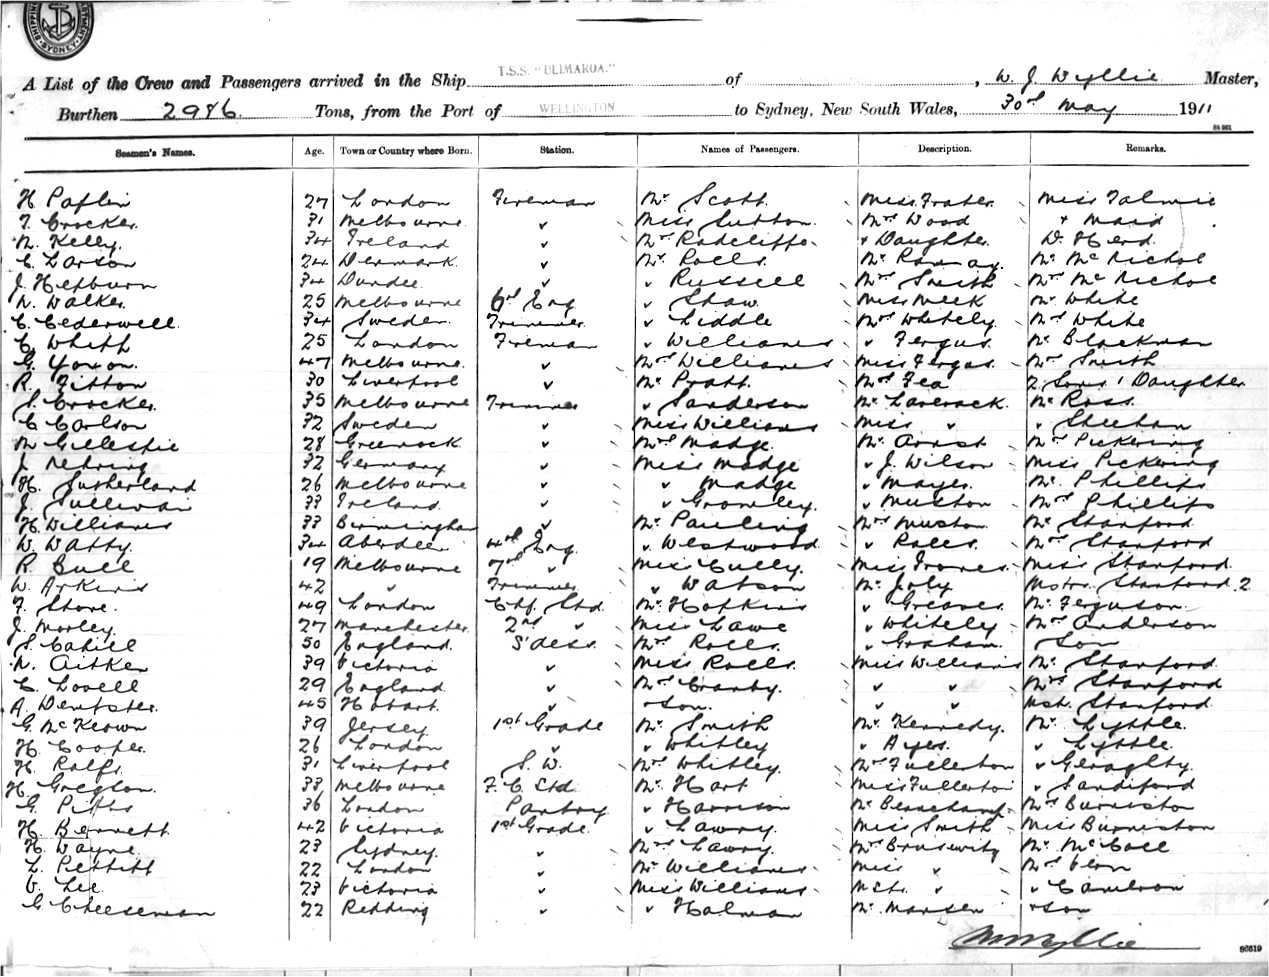 SHIPPING SYDNEY
A List of the Crew and Passengers arrived in the Ship T.S.S. "ULIMAROA." of , W. J. Wyllie Master,
Burthen 2986. Tons, from the Port of WELLINGTON to Sydney, New South Wales, 30th May 1911
Seamen's Names. Age. Town or Country where Born. Station. Names of Passengers. Description. Remarks.
27 London Fireman Mr Scott. Miss Frater. Miss Tolmie
T. Crocker. 31 Melbourne " Miss Sutton. Mrs Wood + Maid
M. Kelly. 34 Ireland " Mrs Radcliffe " Daughter. D. Herd.
C. Larson 24 Denmark. " Mr Rolls. Mr Ramsay. Mr McNichol
J. Hepburn 34 Dundee. " " Russell Mrs Smith Mrs McNichol
W. Walker. 25 Melbourne 6th Eng " Shaw Miss Meek Mr White
C. Cederwell. 34 Sweden. Trimmer. " Liddle Mrs Whitely. Mrs White
C. 25 London Fireman " Williams " Fergus. Mr Blackman
G. Yoxon. 47 Melbourne. " Mrs Williams Miss Fergus. Mrs Smith
R. Fitton 30 Liverpool " Mr Pratt. Mrs Fea 2 Sons 1 Daughter
S. Crocker. 35 Melbourne Trimmer " Sanderson Mr Laverock. Mr Ross.
C. Carlson 32 Sweden " Miss Williams Miss " " Sheehan
M. Gillespie 28 Greenock " Mrs Madge. Mr Mrs Pickering
J. Nehring 32 Germany " Miss Madge " J. Wilson Miss Pickering
H. Sutherland 26 Melbourne " " Madge " Mayer. Mr Phillips
J. Sullivan 33 Ireland. " " " Muston Mrs Phillips
H. Williams 33 Birmingham " Mr Pauling Mrs Muston. Mr Stanford
W. Watty. 34 Aberdeen 4th Eng " Westwood " Rolls. Mrs Stanford
R. Bull 19 Melbourne 7th " Miss Cully. Miss Miss Stanford.
W. 42 " Trimmer " Watson Mr Joly Mstrs. Stanford. 2
F. Shore. 49 London Chf. Std. Mr Hopkins " Greaves Mr Ferguson.
J. Morley. 27 Manchester. 2nd " Miss Lawe " Whiteley Mrs Anderson
S. Cahill 50 England. S'dess. Mrs Rolls. " Graham. Son
N. Aitken 39 Victoria " Miss Rolls. Miss Williams Mr Stanford.
C. Lovell 29 England. " Mrs Cranby. " " Mrs Stanford
A. Dempster. 45 Hobart. " + Son. " " Mst. Stanford.
G. McKeown 39 Jersey. 1st Grade Mr Smith Mr Kennedy. Mr Lyttle.
H. Cooper. 26 London " " Whitley " Ayers. " Lyttle.
H. Rolfs. 31 Liverpool S. W. Mrs Whitley. Mrs Fullerton " Geraghty.
H. 33 Melbourne F. C. Std. Mr Hart Miss Fullerton " Sandiford
G. Pitts 36 London Pantry " Harrison Mr Beauchamp. Mrs Burniston
H. Bennett. 42 Victoria 1st Grade. " Lawry. Miss Smith Miss Burniston
H. Wayne. 23 Sydney. " Mrs Lawry. Mrs Brusewitz Mr McColl
L. Pettitt 22 London. " Mr Williams Miss " Mrs
V. Lee 23 Victoria " Miss Williams Mstr. " " Cameron
G. Cheeseman 22 Redding " " Holman Mr + Son
Wyllie
86619